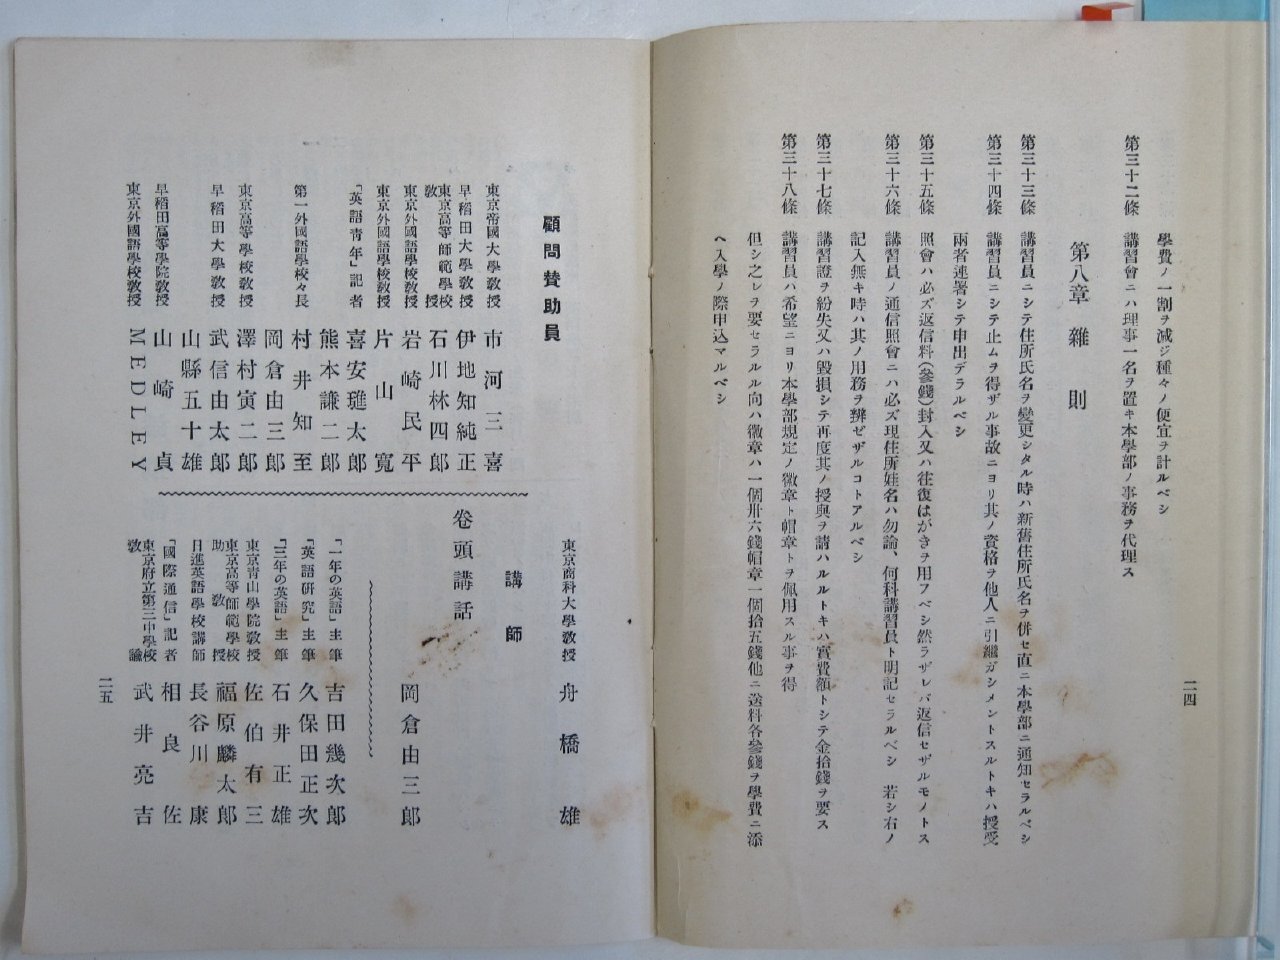 學費ノ一割ヲ減ジ種々ノ便宜ヲ計ルベシ
第三十二條 講習會ニハ理事一名ヲ置キ本學部ノ事務ヲ代理ス
第八章 雜則
第三十三條 講習員ニシテ住所氏名ヲ變更シタル時ハ新舊住所氏名ヲ併セ直ニ本學部ニ通知セラルベシ
第三十四條 講習員ニシテ止ムヲ得ザル事故ニヨリ其ノ資格ヲ他人ニ引繼ガシメントスルトキハ授受
兩者連署シテ申出デラルベシ
第三十五條 照會ハ必ズ返信料(參錢)封入又ハ往復はがきヲ用フベシ然ラザレバ返信セザルモノトス
第三十六條 講習員ノ通信照會ニハ必ズ現住所姓名ハ勿論、何科講習員ト明記セラルベシ 若シ右ノ
記入無キ時ハ其ノ用務ヲ辨ゼザルコトアルベシ
第三十七條 講習證ヲ紛失又ハ毀損シテ再度其ノ授與ヲ請ハルルトキハ實費額トシテ金拾錢ヲ要ス
第三十八條 講習員ハ希望ニヨリ本學部規定ノ徽章ト帽章トヲ佩用スル事ヲ得
但シ之レヲ要セラルル向ハ徽章ハ一個卅六錢帽章一個拾五錢他ニ送料各參錢ヲ學費ニ添
ヘ入學ノ際申込マルベシ
二四
顧問贊助員
東京帝國大學敎授 市河三喜
早稻田大學敎授 伊地知純正
東京高等師範學校敎授 石川林四郎
東京外國語學校敎授 岩崎民平
東京外國語學校敎授 片山寬
「英語靑年」記者 喜安璡太郎
熊本謙二郎
第一外國語學校々長 村井知至
岡倉由三郎
東京高等學校敎授 澤村寅二郎
早稻田大學敎授 武信由太郎
山縣五十雄
早稻田高等學院敎授 山崎貞
東京外國語學校敎授 MEDLEY
東京商科大學敎授 舟橋雄
講師
卷頭講話
岡倉由三郎
「一年の英語」主筆 吉田幾次郎
「英語硏究」主筆 久保田正次
「三年の英語」主筆 石井正雄
東京靑山學院敎授 佐伯有三
東京高等師範學校助敎授 福原麟太郎
日進英語學校講師 長谷川康
「國際通信」記者 相良佐
東京府立第三中學校敎諭 武井亮吉
二五